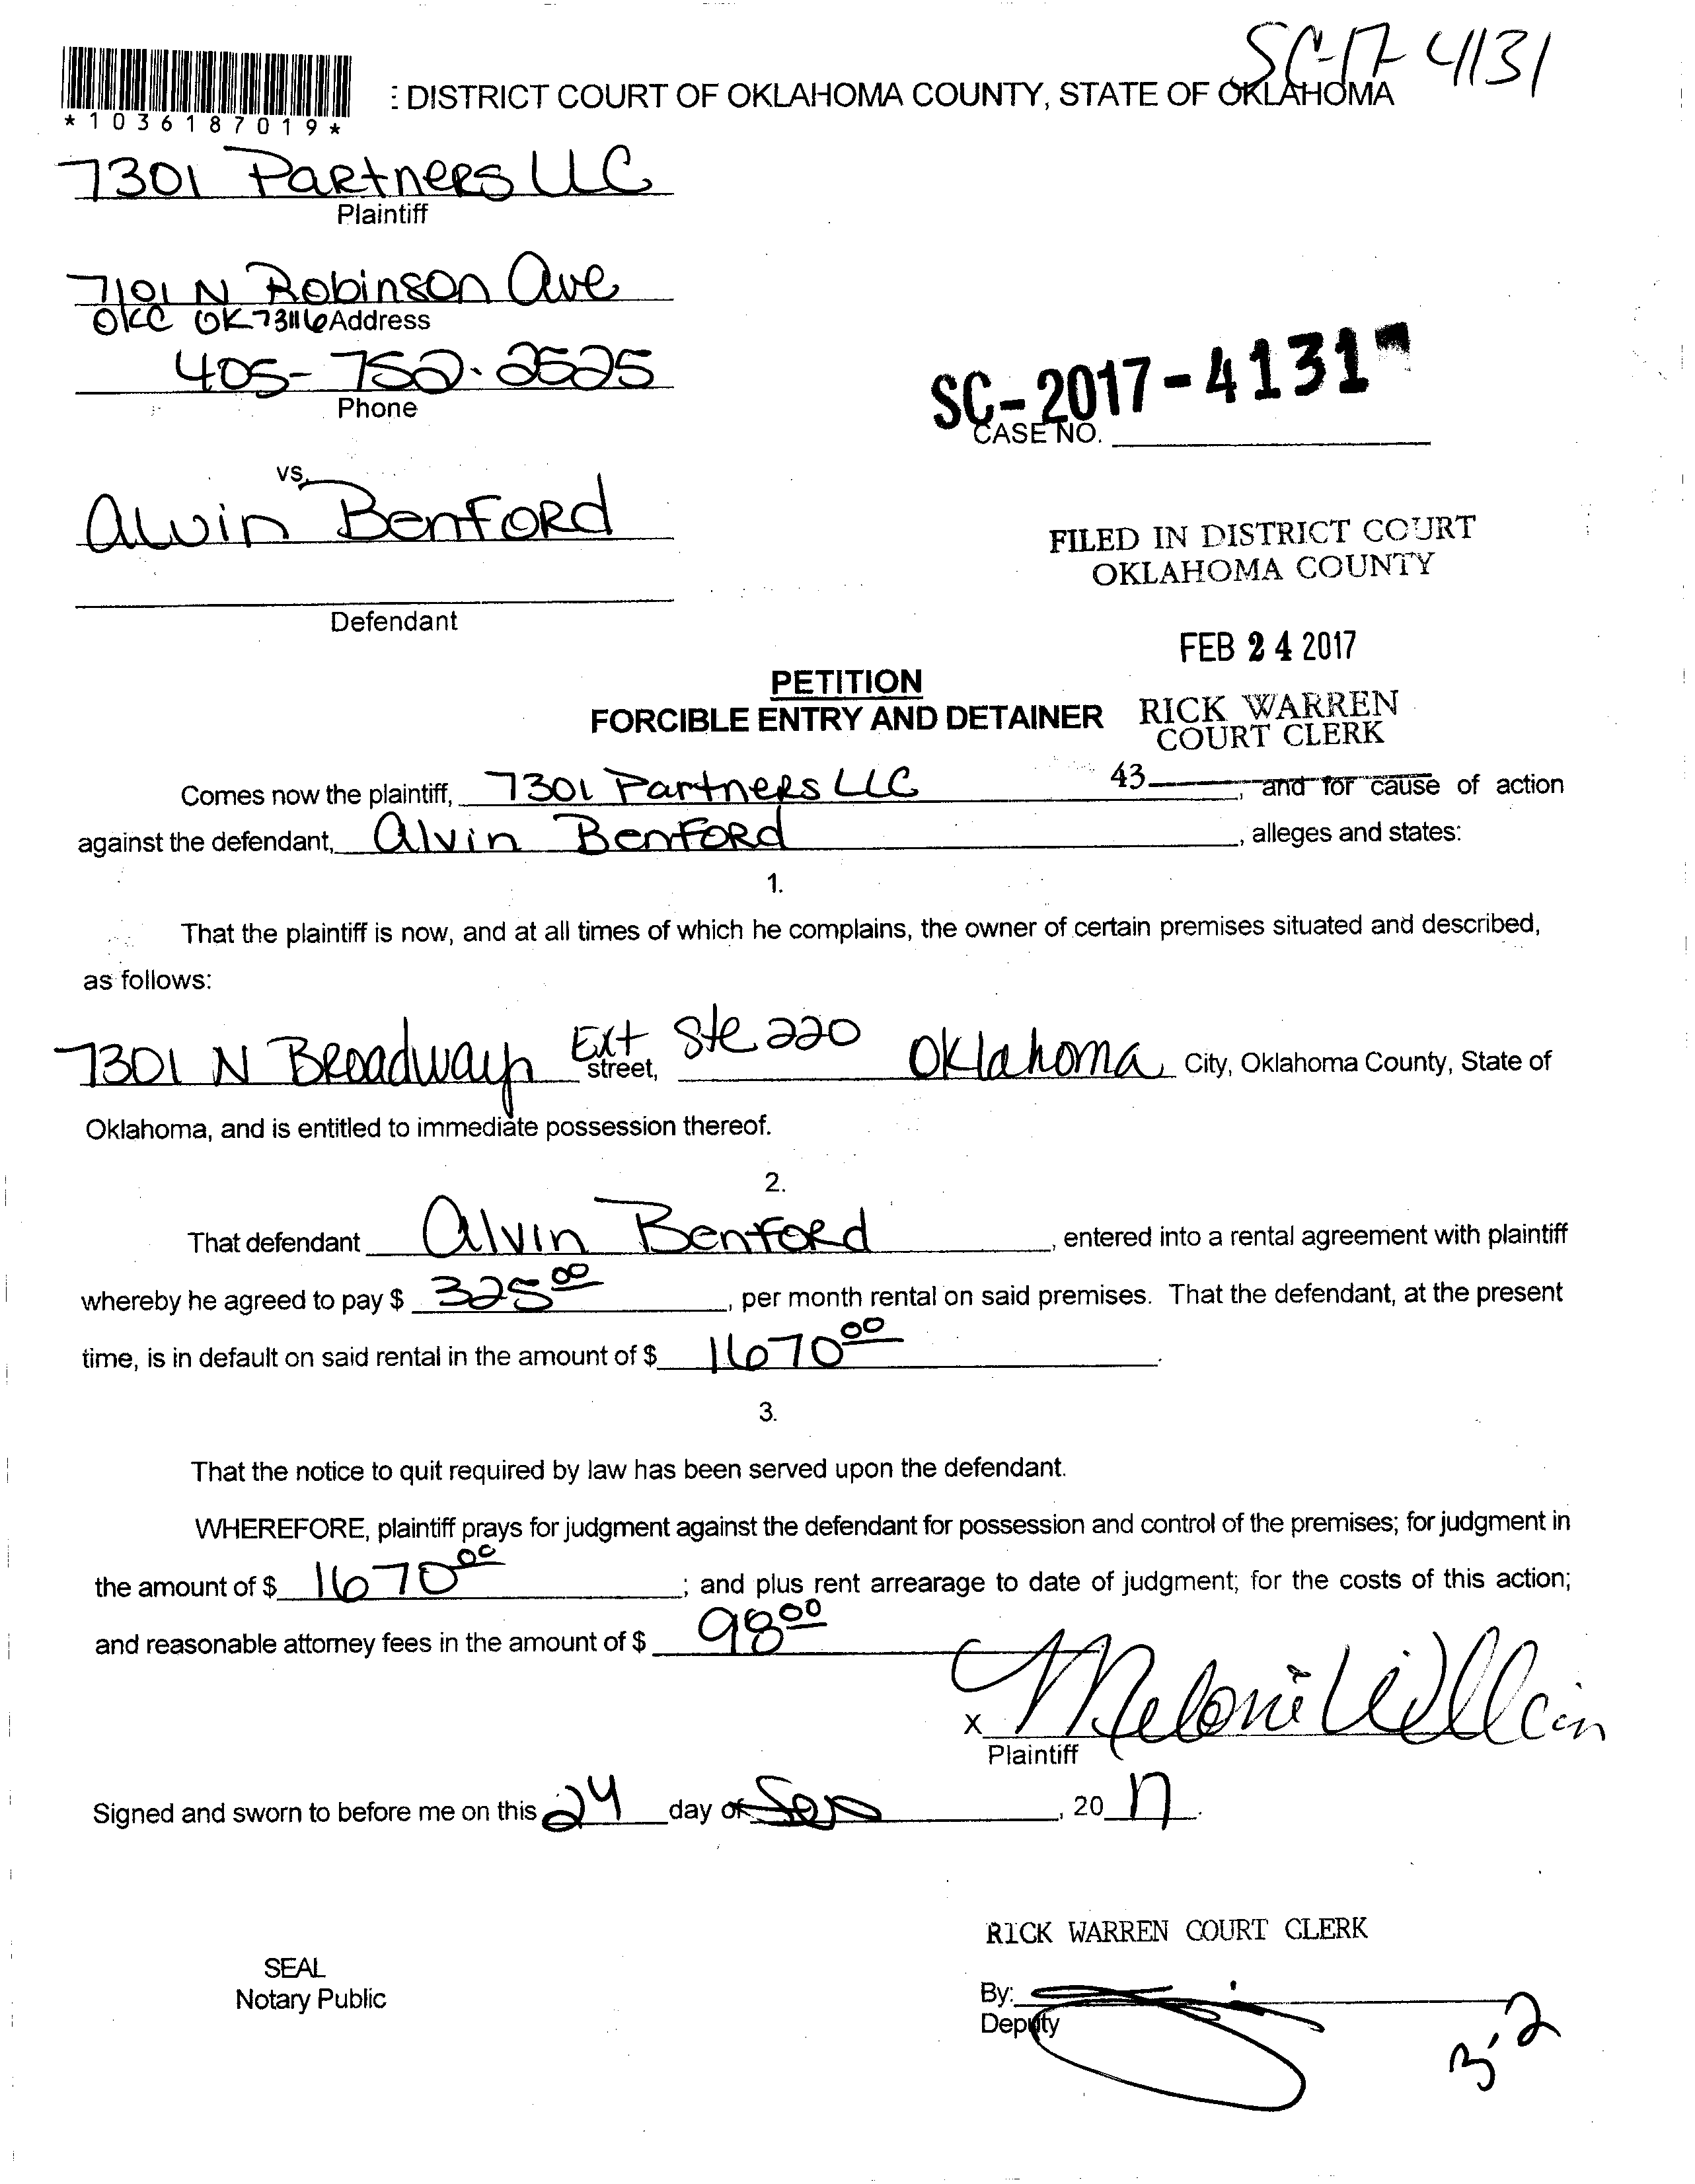 SC-17-4131
: DISTRICT COURT OF OKLAHOMA COUNTY, STATE OF OKLAHOMA
*1036187019*
7301 Partners LLC
Plaintiff
7101 N Robinson Ave
OKC OK 73116 Address
405-752-2525
Phone
SC-2017-4131
CASE NO.
vs.
Alvin Benford
FILED IN DISTRICT COURT
OKLAHOMA COUNTY
Defendant
FEB 24 2017
PETITION
FORCIBLE ENTRY AND DETAINER
RICK WARREN
COURT CLERK
43
Comes now the plaintiff, 7301 Partners LLC, and for cause of action
against the defendant, Alvin Benford, alleges and states:
1.
That the plaintiff is now, and at all times of which he complains, the owner of certain premises situated and described,
as follows:
7301 N Broadway Ext street, Ste 220 Oklahoma City, Oklahoma County, State of
Oklahoma, and is entitled to immediate possession thereof.
2.
That defendant Alvin Benford, entered into a rental agreement with plaintiff
whereby he agreed to pay $ 325 00, per month rental on said premises. That the defendant, at the present
time, is in default on said rental in the amount of $ 1670 00.
3.
That the notice to quit required by law has been served upon the defendant.
WHEREFORE, plaintiff prays for judgment against the defendant for possession and control of the premises; for judgment in
the amount of $ 1670 00; and plus rent arrearage to date of judgment; for the costs of this action;
and reasonable attorney fees in the amount of $ 98 00
x
Plaintiff
Signed and sworn to before me on this 24 day of , 20 17.
RICK WARREN COURT CLERK
SEAL
Notary Public
By:
Deputy
3-2